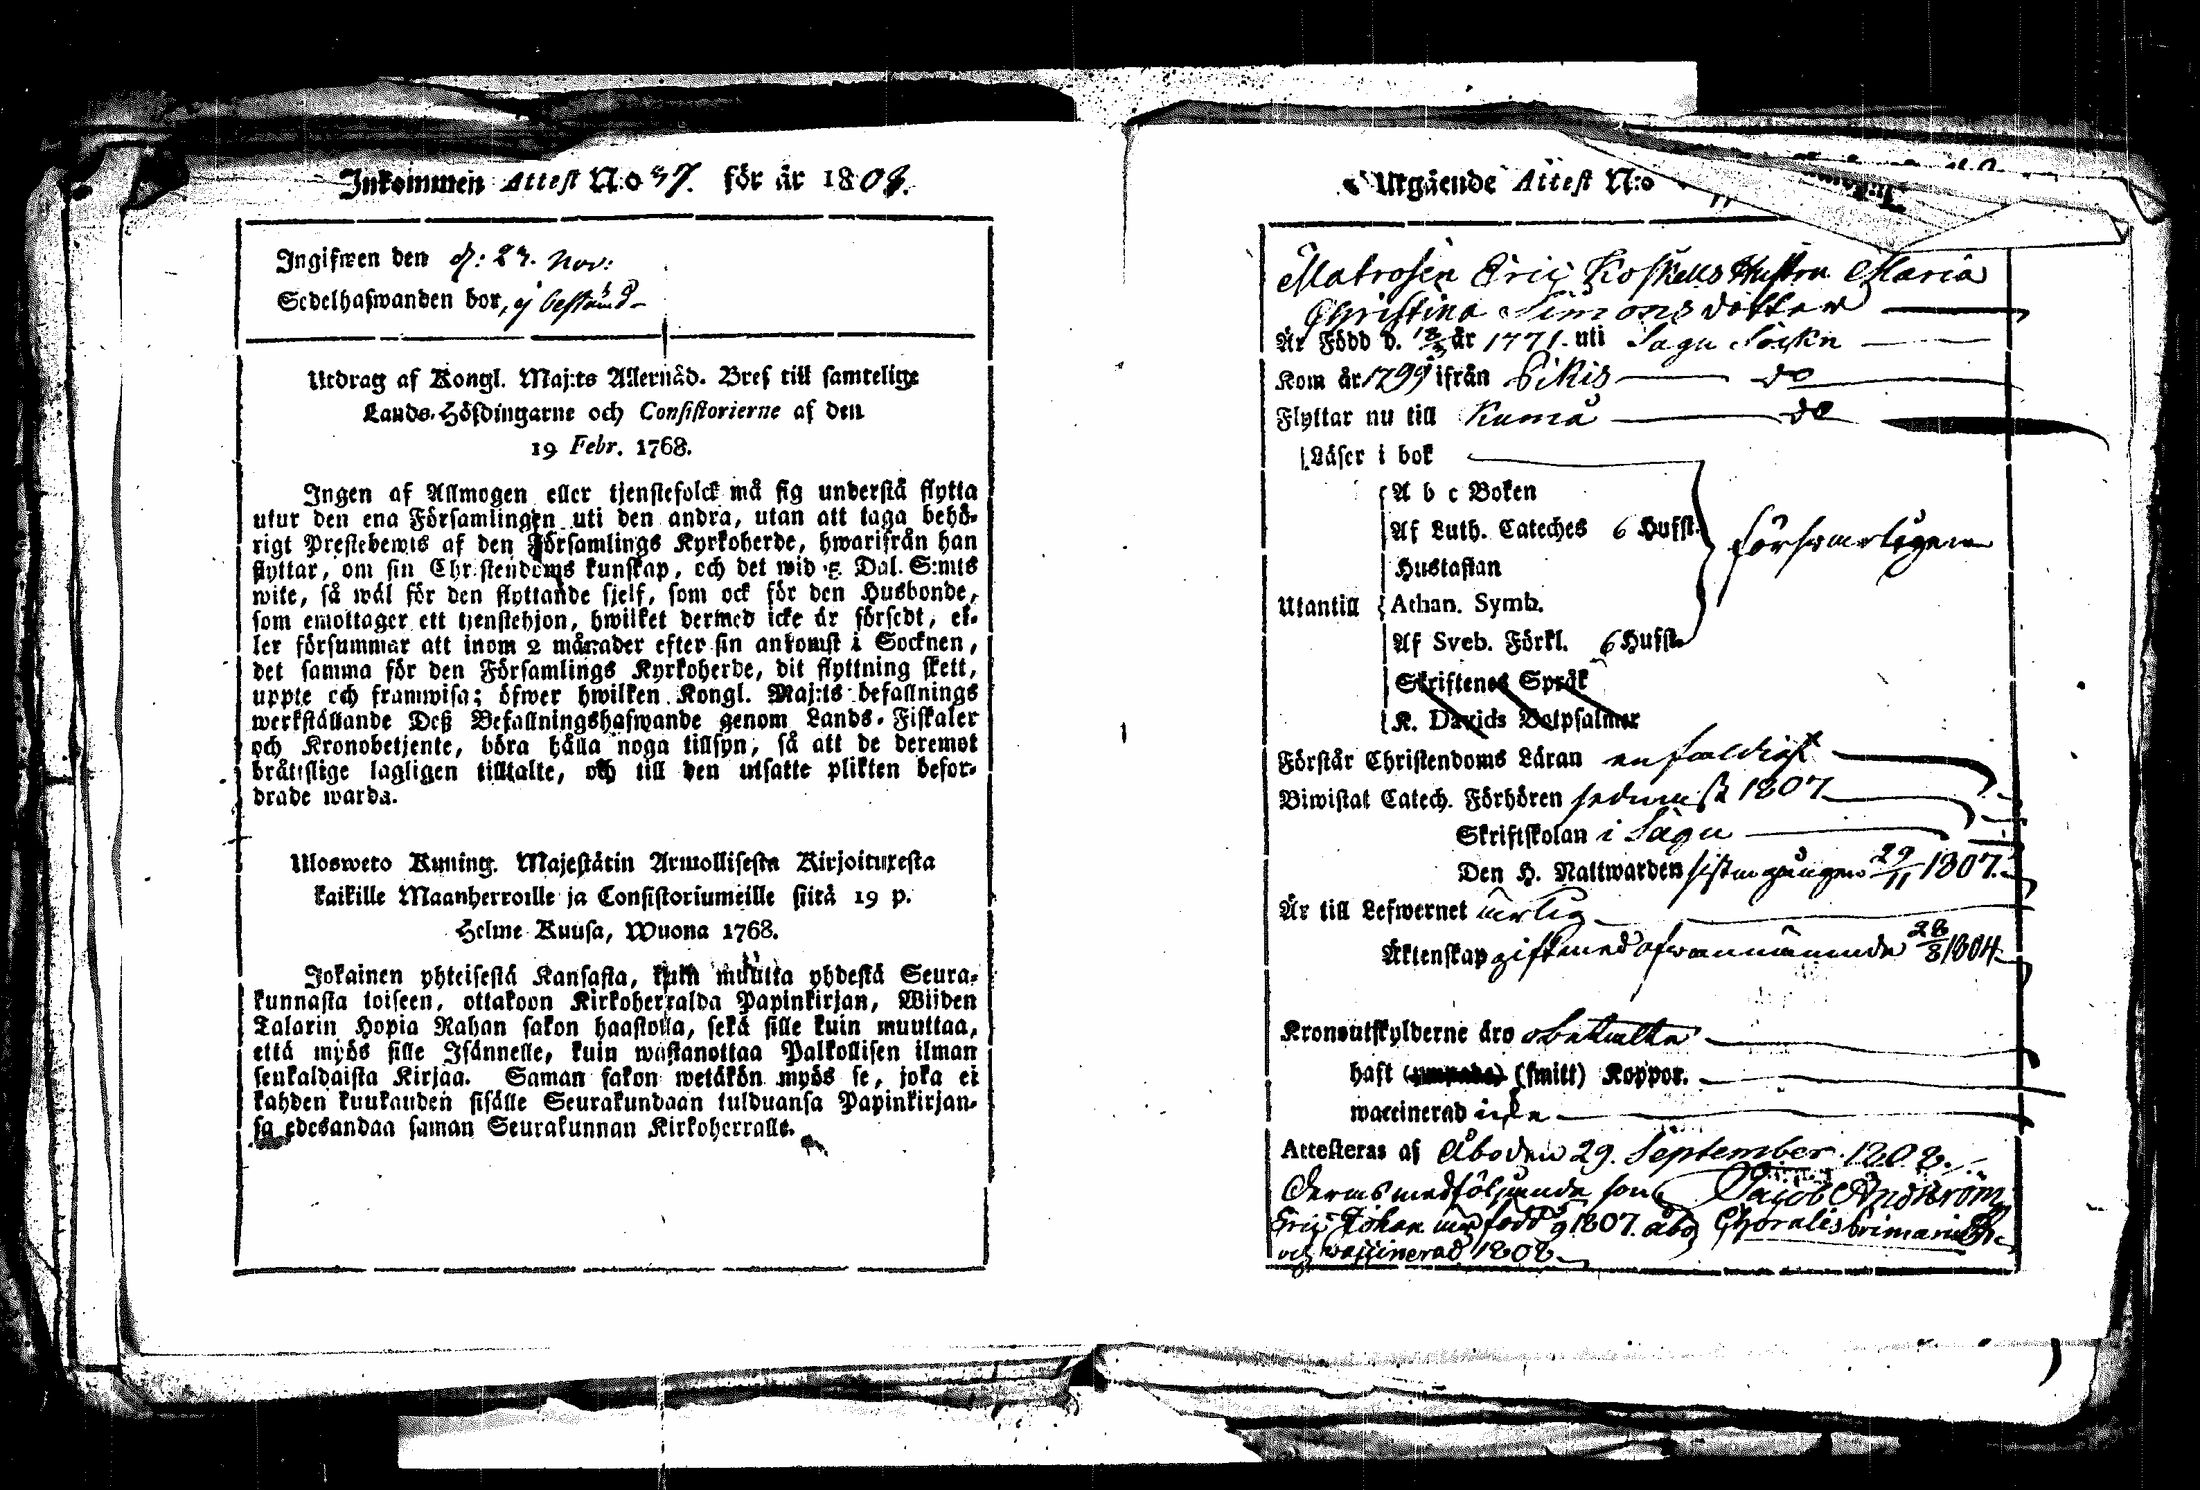 Inkommen Attest N:o 37. för år 1808.
Ingifwen den d: 23. Nov:
Sedelhafwanden bor, ej bestånd
Utdrag af Kongl. Maj:ts Allernåd. Bref till samtelige
Lands-Höfdingarne och Consistorierne af den
19 Febr. 1768.
Ingen af Allmogen eller tjenstefolck må sig understå flytta
utur den ena Församlingen uti den andra, utan att taga behö-
rigt Prestebewis af den Församlings Kyrkoherde, hwarifrån han
flyttar, om sin Christendoms kunskap, och det wid 5 Dal. S:mts
wite, så wäl för den flyttande sjelf, som ock för den Husbonde,
som emottager ett tjenstehjon, hwilket dermed icke är försedt, el-
ler försummar att inom 2 månader efter sin ankomst i Socknen,
det samma för den Församlings Kyrkoherde, dit flyttning skett,
uppte och framwisa; öfwer hwilken Kongl. Maj:ts befallnings
werkställande Deß Befallningshafwande genom Lands-Fiskaler
och Kronobetjente, böra hålla noga tillsyn, så att de deremot
bråttslige lagligen tilltalte, och till den utsatte plikten befor-
drade warda.
Ulosweto Kuning. Majestätin Armollisesta Kirjoituxesta
kaikille Maanherroille ja Consistoriumeille siitä 19 p.
Helme Kuusa, Wuona 1768.
Jokainen yhteisestä Kansasta, kuin muutta yhdestä Seura-
kunnasta toiseen, ottakoon Kirkoherralda Papinkirjan, Wiiden
Talarin Hopia Rahan sakon haastolla, sekä sille kuin muuttaa,
että myös sille Isännelle, kuin wastanottaa Palkollisen ilman
senkaldaista Kirjaa. Saman sakon wetäkön myös se, joka ei
kahden kuukauden sisälle Seurakundaan tulduansa Papinkirjan-
sa edesandaa saman Seurakunnan Kirkoherralle.
Utgående Attest N:o
Matrosen Eric Koskells Hustru Maria
Christina Simons dotter
Är Född d. år 1771. uti Sagu Sockn
Kom år 1799 ifrån Pikis do
Flyttar nu till Kumå do
Läser i bok
A b c Boken
Af Luth. Cateches 6 Hufst.
Hustaflan
Utantill Athan. Symb.
Af Sveb. Förkl. 6 Hufst.
försvarligen
Skriftenes Språk
K. Davids Botpsalmer
Förstår Christendoms Läran enfaldigt
Biwistat Catech. Förhören sednast 1807
Skriftskolan i Sagu
Den H. Nattwarden sista gången 29/11 1807.
Är till Lefwernet ärlig
Äktenskap gift med ofvannämnde 28/8 1804
Kronoutskylderne äro obetalte
haft (smitt) Koppor.
waccinerad icke
Attesteras af Åbo den 29. September. 1808.
Deras medföljande son Jacob Andström
Eric Johan född 1807. Åbo Choralis primarius
och vaccinerad 1808